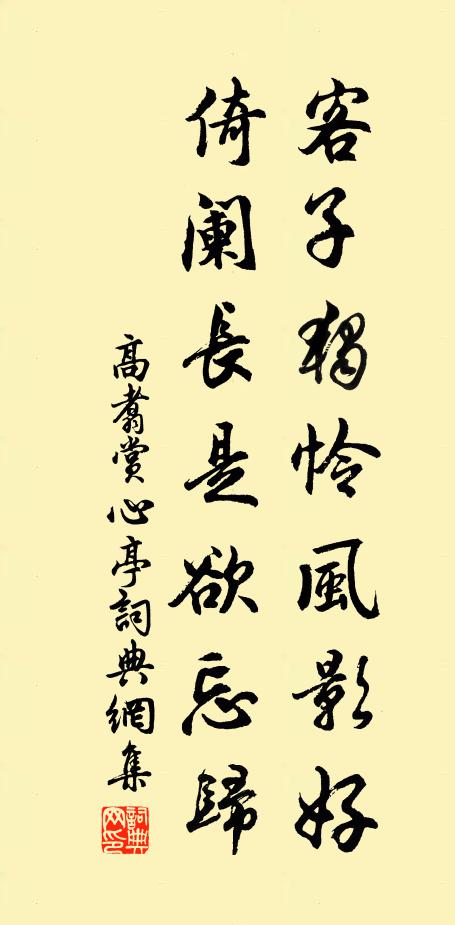 客子獨怜風影好
倚闌長是欲忘歸
高翥賞心亭詞典網集
詞典网印